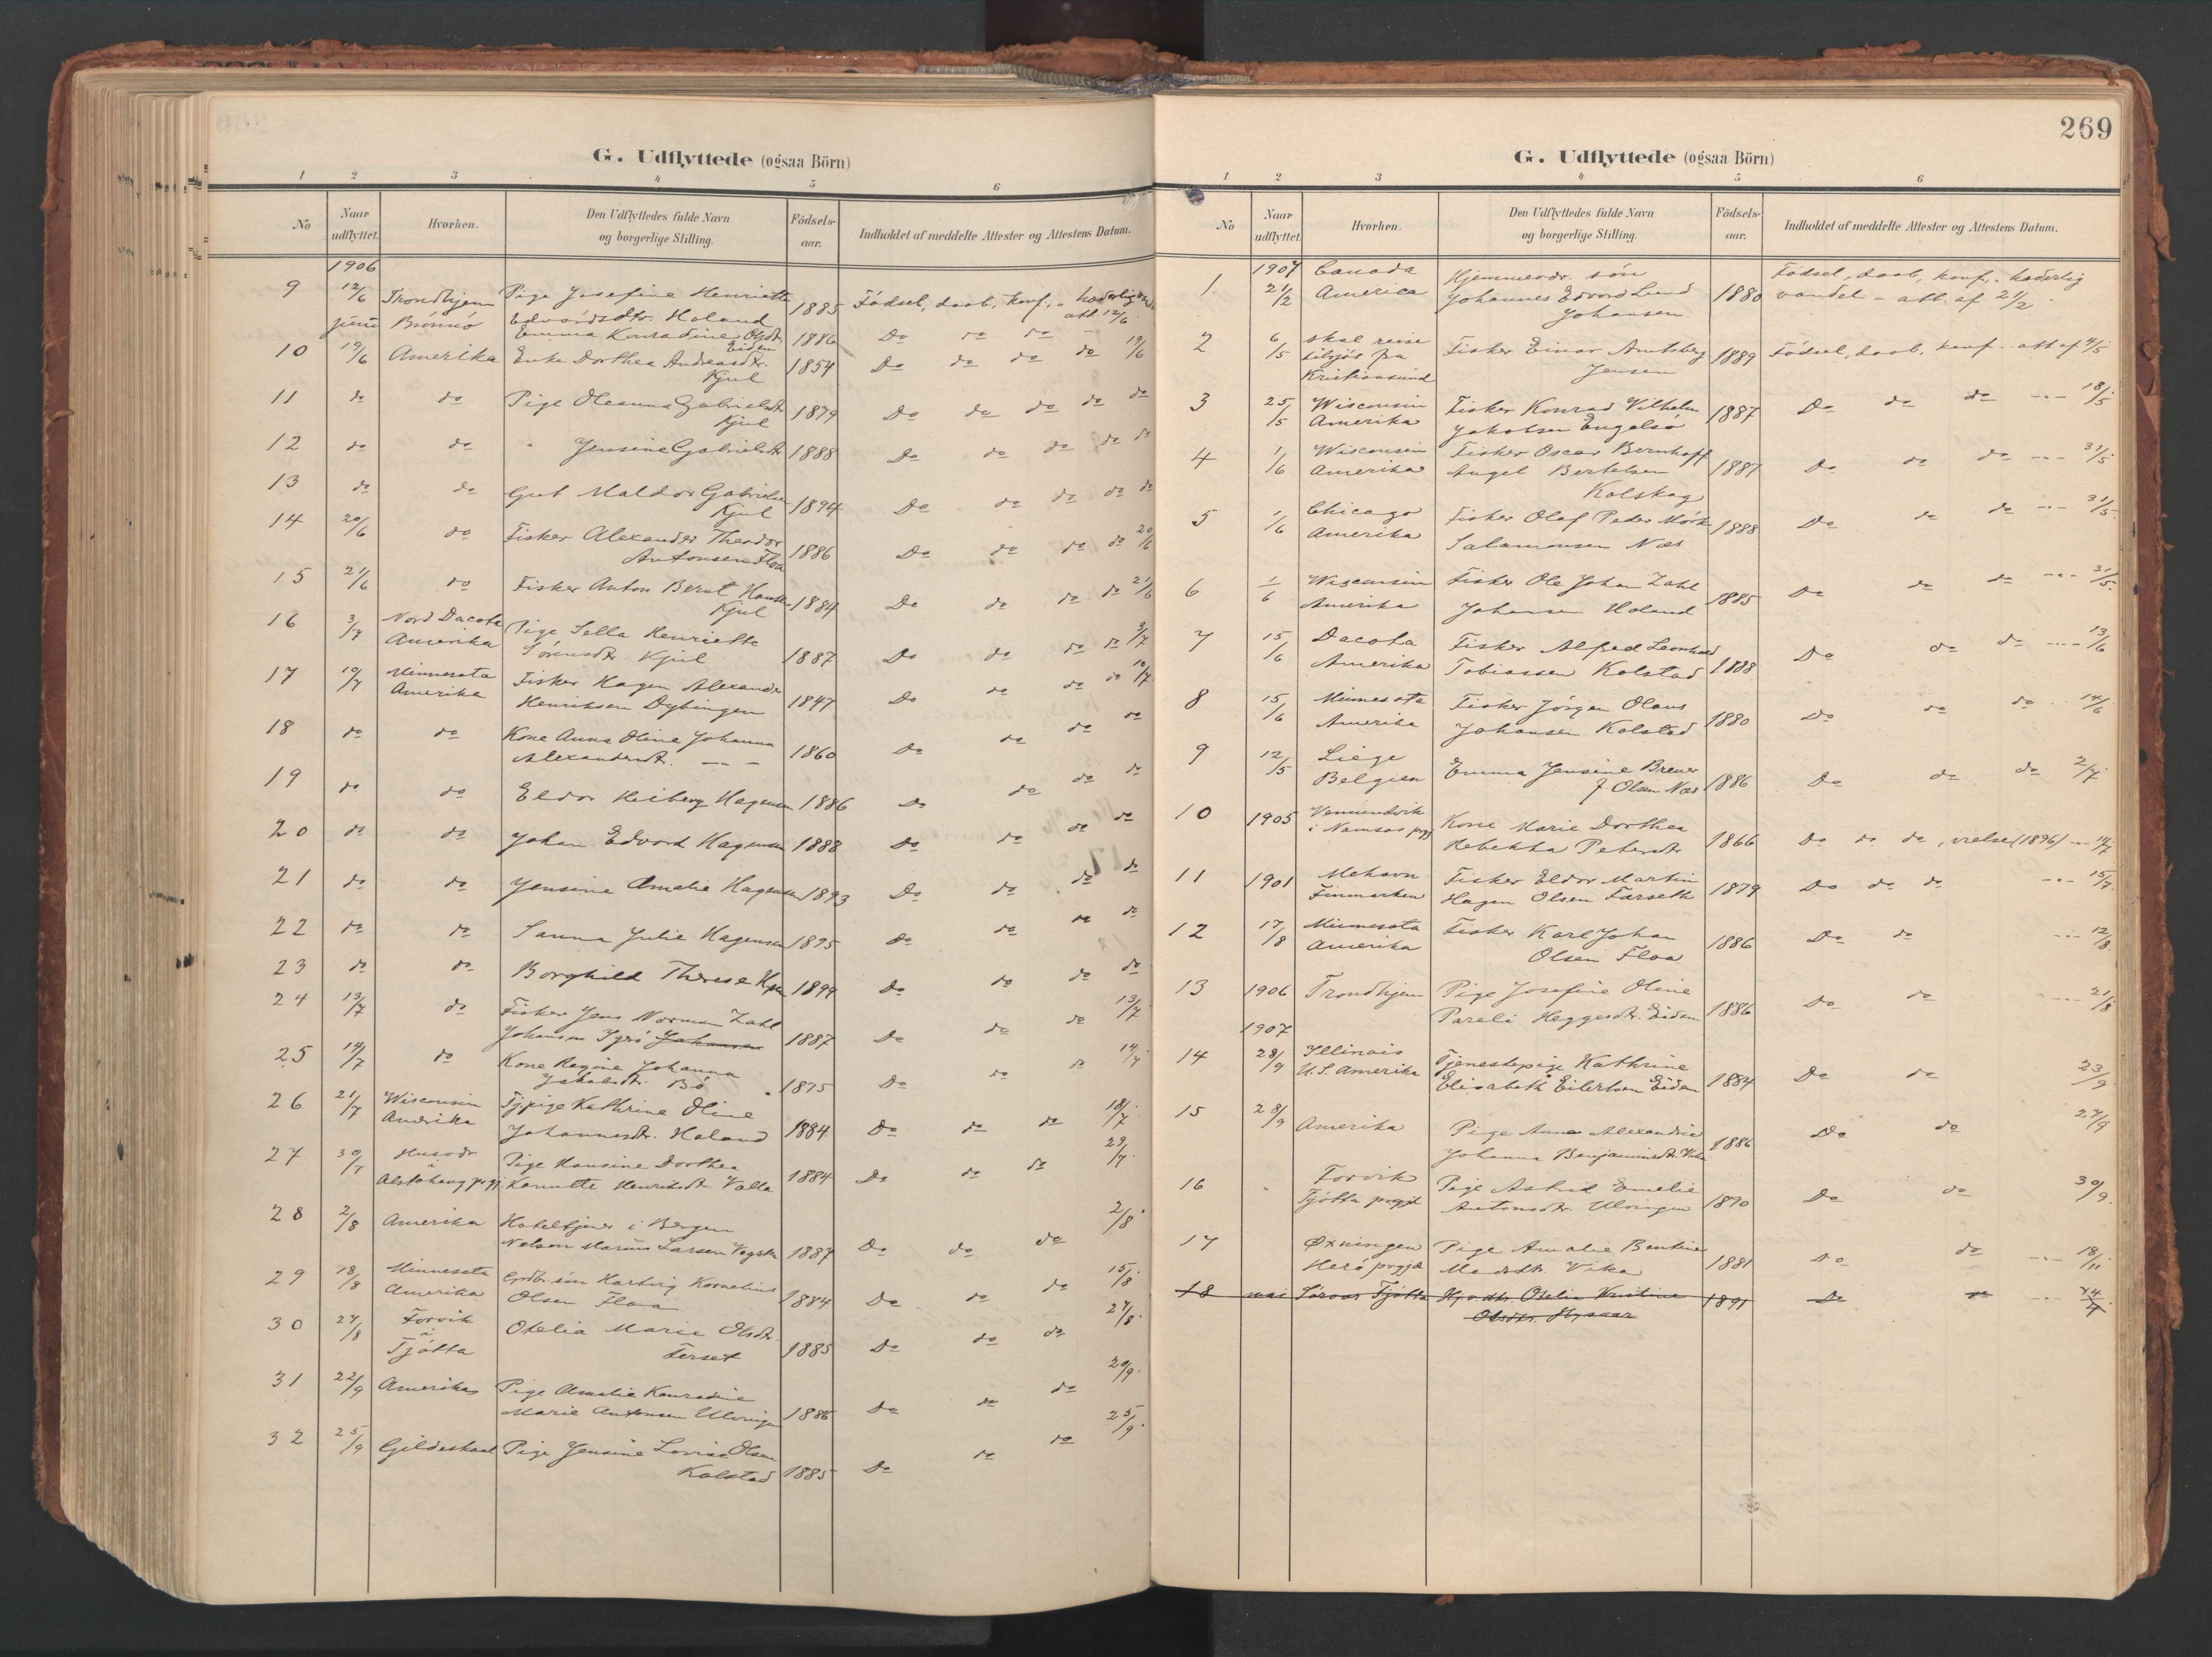 G. Udflyttede (ogsaa Börn)
1 2 3 4 5 6
No Naar udflyttet. Hvorhen. Den Udflyttedes fulde Navn og borgerlige Stilling. Födsels-aar. Indholdet af meddelte Attester og Attestens Datum.
1906
9 12/6 Trondhjem Pige Josefine Henriette
Edvardsdtr. Holand 1885 Födsel, daab, konf., hæderlig
att. 12/6.
juni Brönnö Emma Konradine Olsdtr.
Eiden 1886 Do do do
10 19/6 Amerika Enke Dorthea Andreasdtr.
Kjul 1854 Do do do do 19/6
11 do do Pige Oleanna Gabrielsdtr
Kjul 1879 Do do do do do
12 do do " Jensine Gabrielsdtr 1888 Do do do do do
13 do do Gut Haldor Gabrielsen
Kjul 1894 Do do do do do
14 20/6 do Fisker Alexander Theodor
Antonsen Floa 1886 Do do do do 20/6
15 21/6 do Fisker Anton Bernt Hansen
Kjul 1884 Do do do do 21/6
16 3/7 Nord Dacota
Amerika Pige Sella Henriette
Sörensdtr. Kjul 1887 Do do do do 3/7
17 10/7 Minnesota
Amerika Fisker Hagen Alexander
Henriksen Dybingen 1847 Do do do do 10/7
18 do do Kone Anna Oline Johanna
Alexandersdtr. — " — 1860 Do do do do
19 do do Eldor Heiberg Hagensen 1886 Do do do do
20 do do Johan Edvard Hagensen 1888 Do do do do
21 do do Jensine Amalie Hagensen 1893 Do do do do
22 do do Sanna Julie Hagensen 1895 Do do do do
23 do do Borghild Therese 1899 Do do do do
24 13/7 do Fisker Jens Norman Zahl
Johansen Igerö Johansen 1887 Do do do 13/7
25 14/7 do Kone Regine Johanna
Jakobsdtr. Bö 1875 Do do do 14/7
26 21/7 Wisconsin
Amerika Tjpige Kathrine Oline
Johannesdtr. Holand 1884 Do do do 18/7
27 30/7
i
Alstahaug prgj. Pige Hansine Dorthea
Henriksdtr. Valla 1884 Do do do 29/7
28 2/8 Amerika Hoteltjener i Bergen
Nelson Marius Larsen 1887 Do do do 2/8
29 18/8 Minnesota
Amerika Grdbr. sön Hartvig Kornelius
Olsen Floa 1884 Do do do 15/8
30 27/8 Forvik
i
Tjötta Otelia Marie Olsdtr.
Forset 1885 Do do do 27/8
31 22/9 Amerika Pige Amalie Konradine
Marie Antonsen Ulvingen 1886 Do do do 20/9
32 25/9 Gildeskaal Pige Jensine Lovise Olsen
Kolstad 1885 Do do do 25/9
269
G. Udflyttede (ogsaa Börn)
1 2 3 4 5 6
No Naar udflyttet. Hvorhen. Den Udflyttedes fulde Navn og borgerlige Stilling. Födsels-aar. Indholdet af meddelte Attester og Attestens Datum.
1 1907
21/2 Canada
America Hjemmevær. sön
Johannes Edvord Lund
Johansen 1880 Födsel, daab, konf., hæderlig
vandel - att. af 21/2.
2 6/5 skal reise
tilsjös fra
Kristiansund Fisker Einar Amtsberg
Jensen 1889 Födsel, daab, konf. att af 4/5
3 25/5 Wisconsin
Amerika Fisker Konrad Vilhelm
Jakobsen Engelsö 1887 Do do do - " - 18/5
4 1/6 Wisconsin
Amerika Fisker Oscar Bernhoff
Angel Bertelsen
Kolskog 1887 Do do do - " - 31/5
5 1/6 Chicago
Amerika Fisker Olaf Peder Mörk
Salamonsen Næs 1888 Do do do - " - 31/5.
6 1/6 Wisconsin
Amerika Fisker Ole Johan Zahl
Johansen Holand 1885 Do do do - " - 31/5.
7 15/6 Dacota
Amerika Fisker Alfred Leonhard
Tobiassen Kolstad 1888 Do do do - " - 13/6
8 15/6 Minnesota
Amerika Fisker Jörgen Olaus
Johansen Kolstad 1880 Do do do . 14/6
9 12/5 Liége
Belgien Emma Jensine Brener
f. Olsen Næs 1886 Do do do 2/7
10 1905 Vemundvik
i Namsos prgj Kone Marie Dorthea
Rebekka Petersdtr 1866 Do do do, vielse (1896) - " 14/7
11 1901 Mehavn
Finmarken Fisker Eldor Martin
Hagen Olsen Farseth 1879 Do do do - " - 15/7.
12 17/8 Minnesota
Amerika Fisker Karl Johan
Olsen Floa 1886 Do do - " - 12/8.
13 1906 Trondhjem Pige Josefine Oline
Pareli Heggesdtr. Eiden 1886 Do do - " - 21/8
1907
14 28/9 Illinois
U.S. Amerika Tjenestepige Kathrine
Elisabeth Eilertsen Eiden 1884 Do do 23/9
15 28/9 Amerika Pige Anna Alexandrie
Johanna Benjaminsdtr. Vika 1886 Do do 27/9
16 " Forvik
Tjötta prgjd Pige Astrid Emelie
Antonsdtr. Ulvingen 1890 Do do 30/9.
17 Øxningen
Herö prgjd. Pige Amalie Bentine
Madsdtr. Vika 1881 Do do - " - 18/11
18 mai Tjötta Otelia Kristine
Olsdtr. 1891 Do do - " -